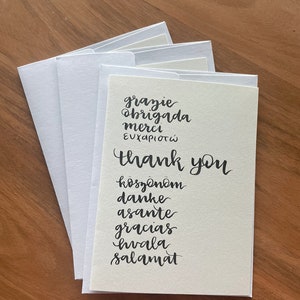 grazie
obrigada
merci
ευχαριστώ
thank you
koszonom
danke
asante
gracias
hvala
salamat